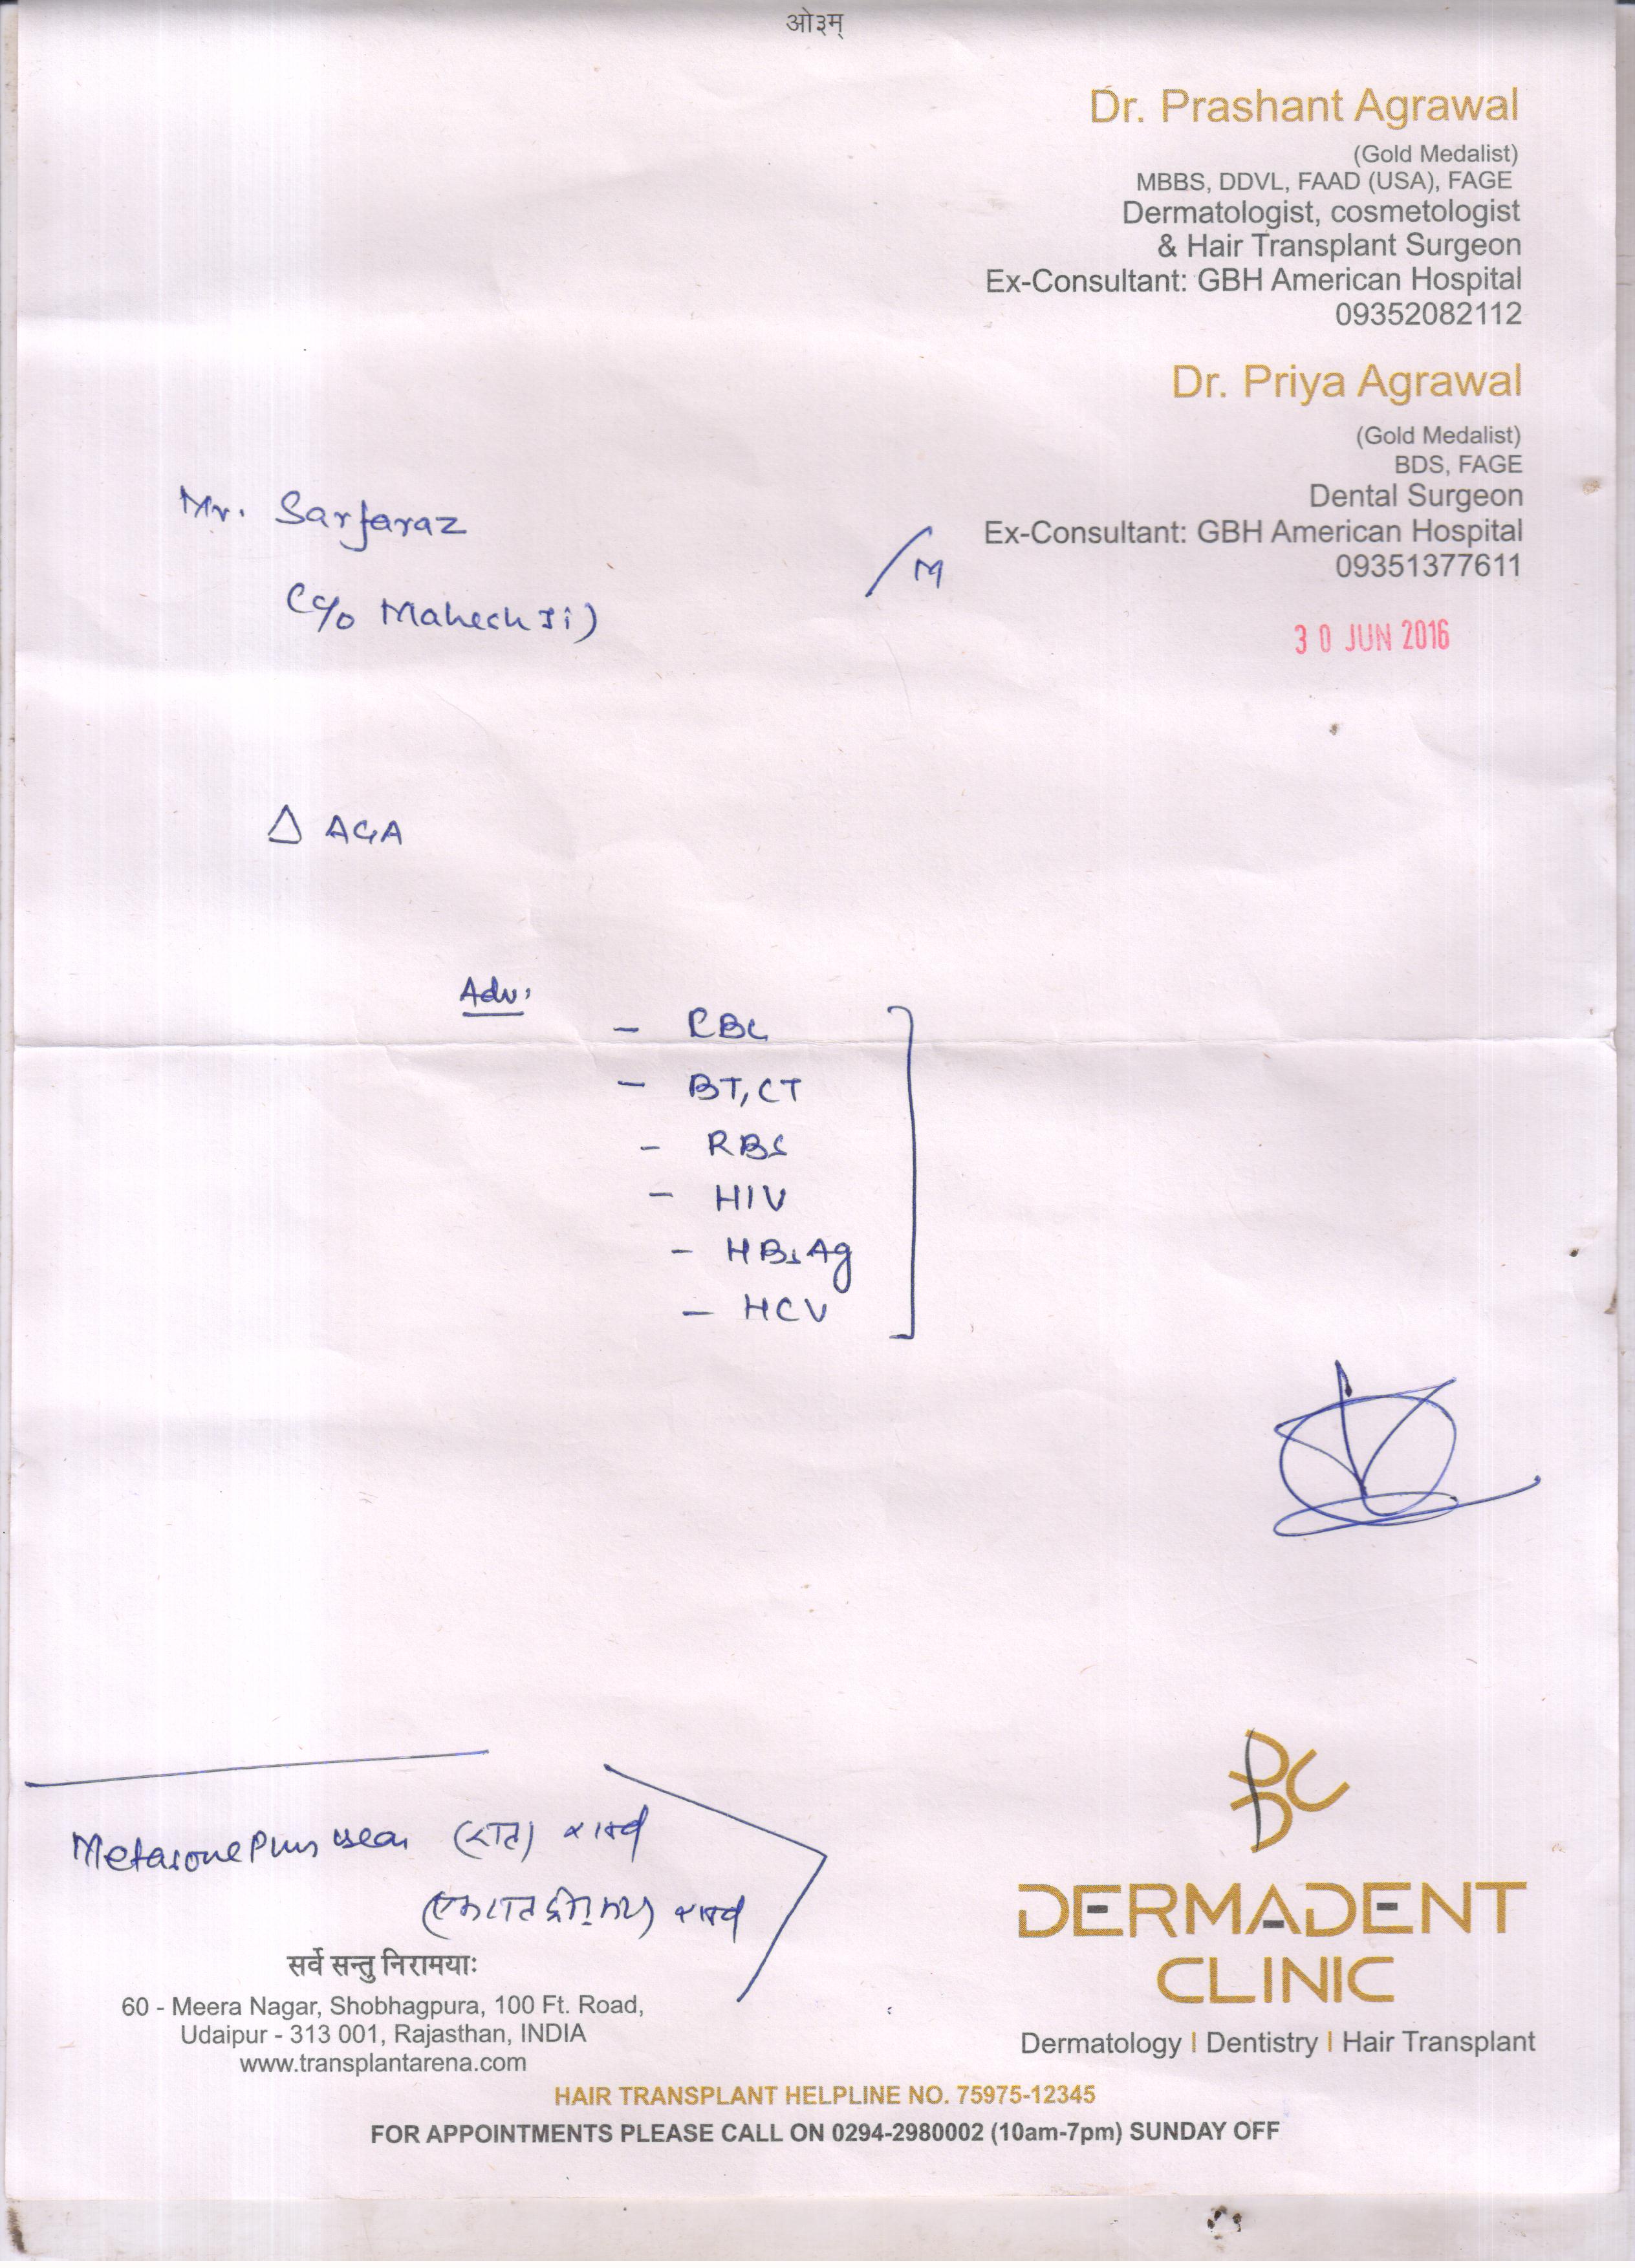 ओ३म्
Dr. Prashant Agrawal
(Gold Medalist)
MBBS, DDVL, FAAD (USA), FAGE
Dermatologist, cosmetologist
& Hair Transplant Surgeon
Ex-Consultant: GBH American Hospital
09352082112
Dr. Priya Agrawal
(Gold Medalist)
BDS, FAGE
Dental Surgeon
Ex-Consultant: GBH American Hospital
09351377611
Mr. Sarfaraz
/M
(c/o Mahesh Ji)
30 JUN 2016
Δ AGA
Adv.
- CBC
- BT, CT
- RBS
- HIV
- HBsAg
- HCV
Metasone Plus (रात)
सर्वे सन्तु निरामयाः
60 - Meera Nagar, Shobhagpura, 100 Ft. Road,
Udaipur - 313 001, Rajasthan, INDIA
www.transplantarena.com
DERMADENT
CLINIC
Dermatology | Dentistry | Hair Transplant
HAIR TRANSPLANT HELPLINE NO. 75975-12345
FOR APPOINTMENTS PLEASE CALL ON 0294-2980002 (10am-7pm) SUNDAY OFF